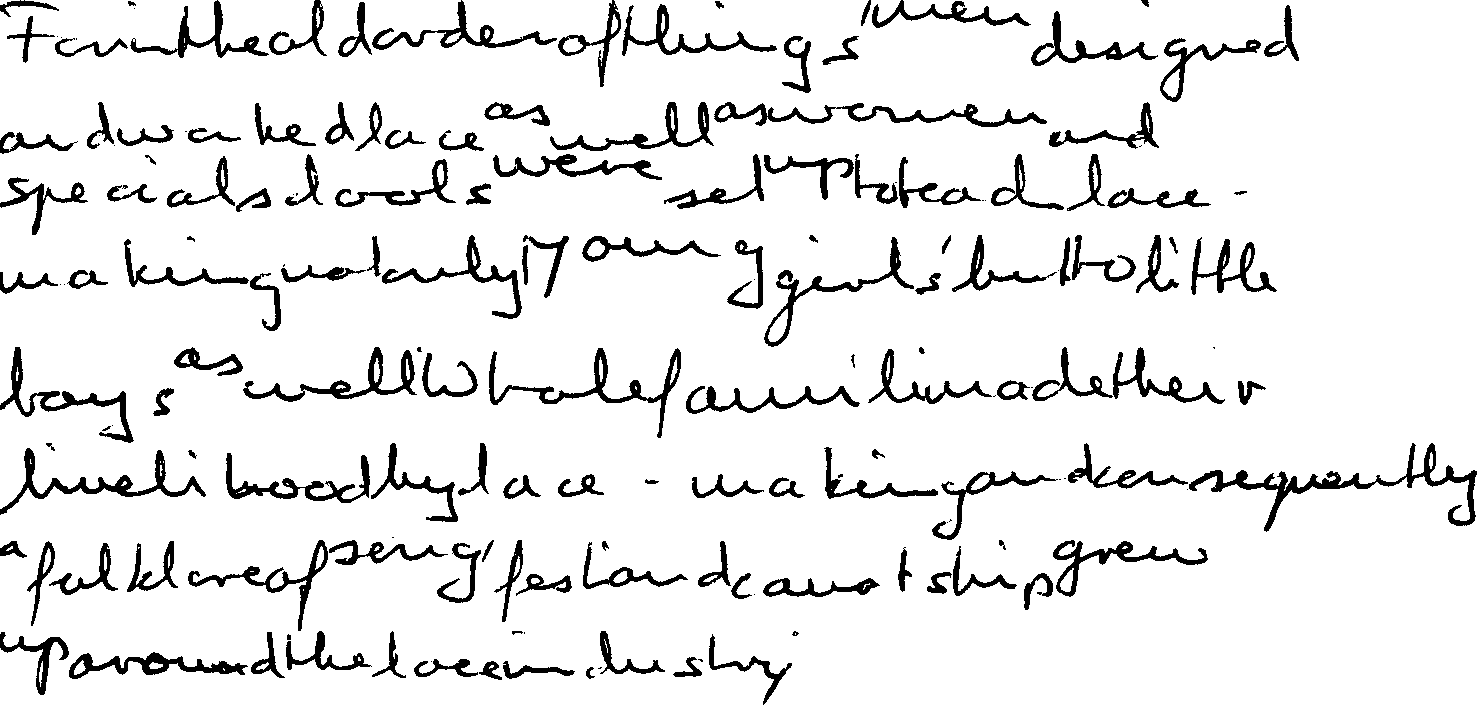 For in the old order of things men designed
and worked lace as well as women and
special schools were set up to teach lace-
making not only young girls' but to little
boys as well Whole families made their
livelihood by lace - making and consequently
a folklore of song, fest and courtship grew
up around the lace industry